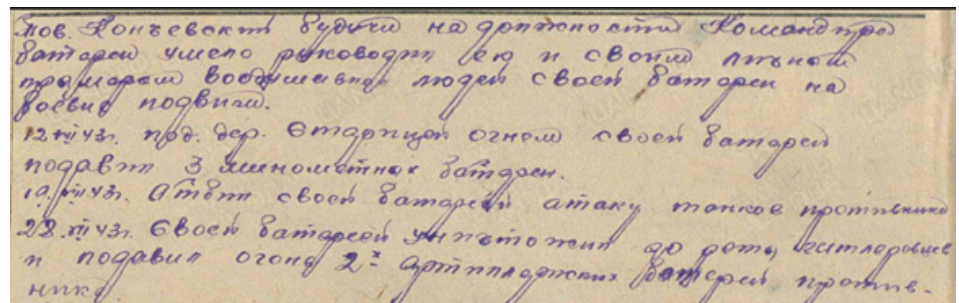 тов. Кончевский будучи на должности Командира
батареи умело руководит ею и своим личным
примером воодушевлял людей своей батареи на
боевые подвиги.
12.VII 43г. под. дер. Старицей огнем своей батареи
подавил 3 минометных батареи.
19.VII 43г. Атбил своей батареей атаку танков противника
28.VII 43г. Своей батареей уничтожил до роты гитлеровцев
и подавил огонь 2х артиллерийских батарей против-
ника.